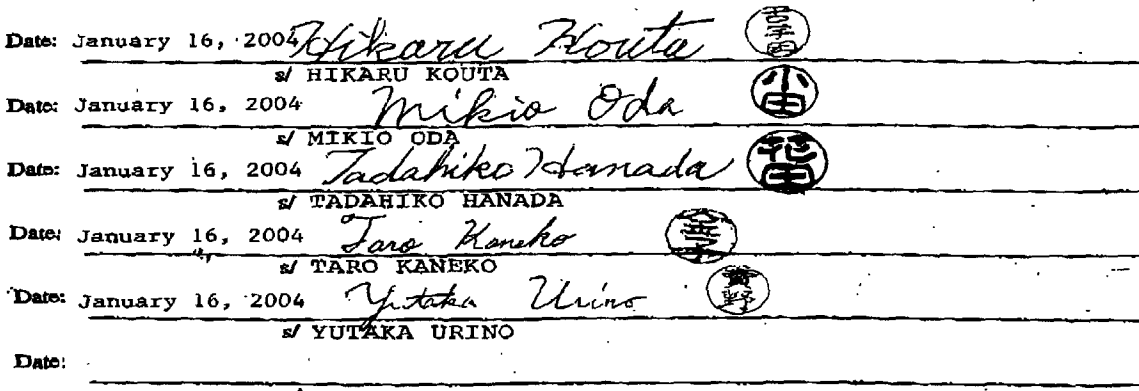 Date: January 16, 2004 Hikaru Kouta
s/ HIKARU KOUTA
Date: January 16, 2004 Mikio Oda 小田
s/ MIKIO ODA
Date: January 16, 2004 Tadahiko Hanada 花田
s/ TADAHIKO HANADA
Date: January 16, 2004 Taro Kaneko
s/ TARO KANEKO
Date: January 16, 2004 Yutaka Urino 賣野
s/ YUTAKA URINO
Date: